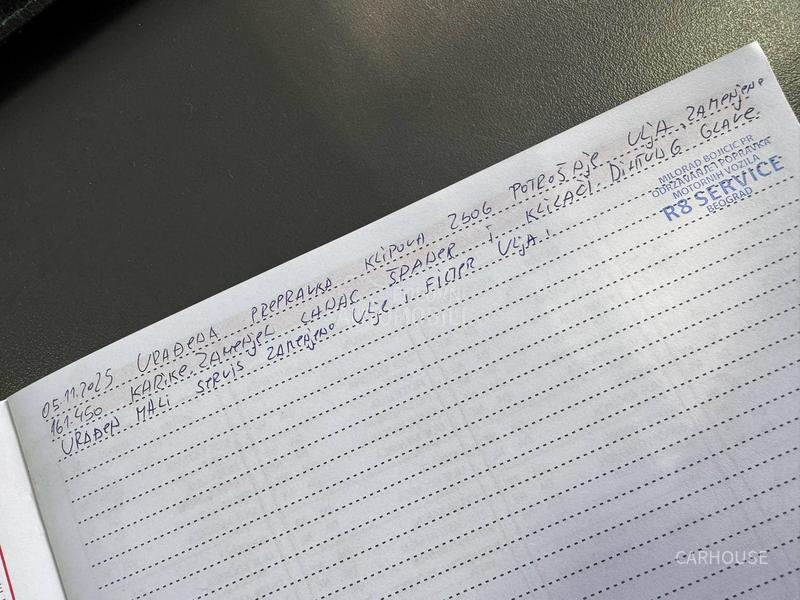 05.11.2025 URAĐENA PREPRAVKA KLIPOVA ZBOG POTROŠNJE ULJA, ZAMENJENE
161.450 KARIKE. ZAMENJEN LANAC ŠPANER I KLIZAČI. DIHTUNG GLAVE.
URAĐEN MALI SERVIS ZAMENJENO ULJE I FILTER ULJA.
MILORAD BOJICIC PR
ODRŽAVANJE I POPRAVKA
MOTORNIH VOZILA
R8 SERVICE
BEOGRAD
CARHOUSE